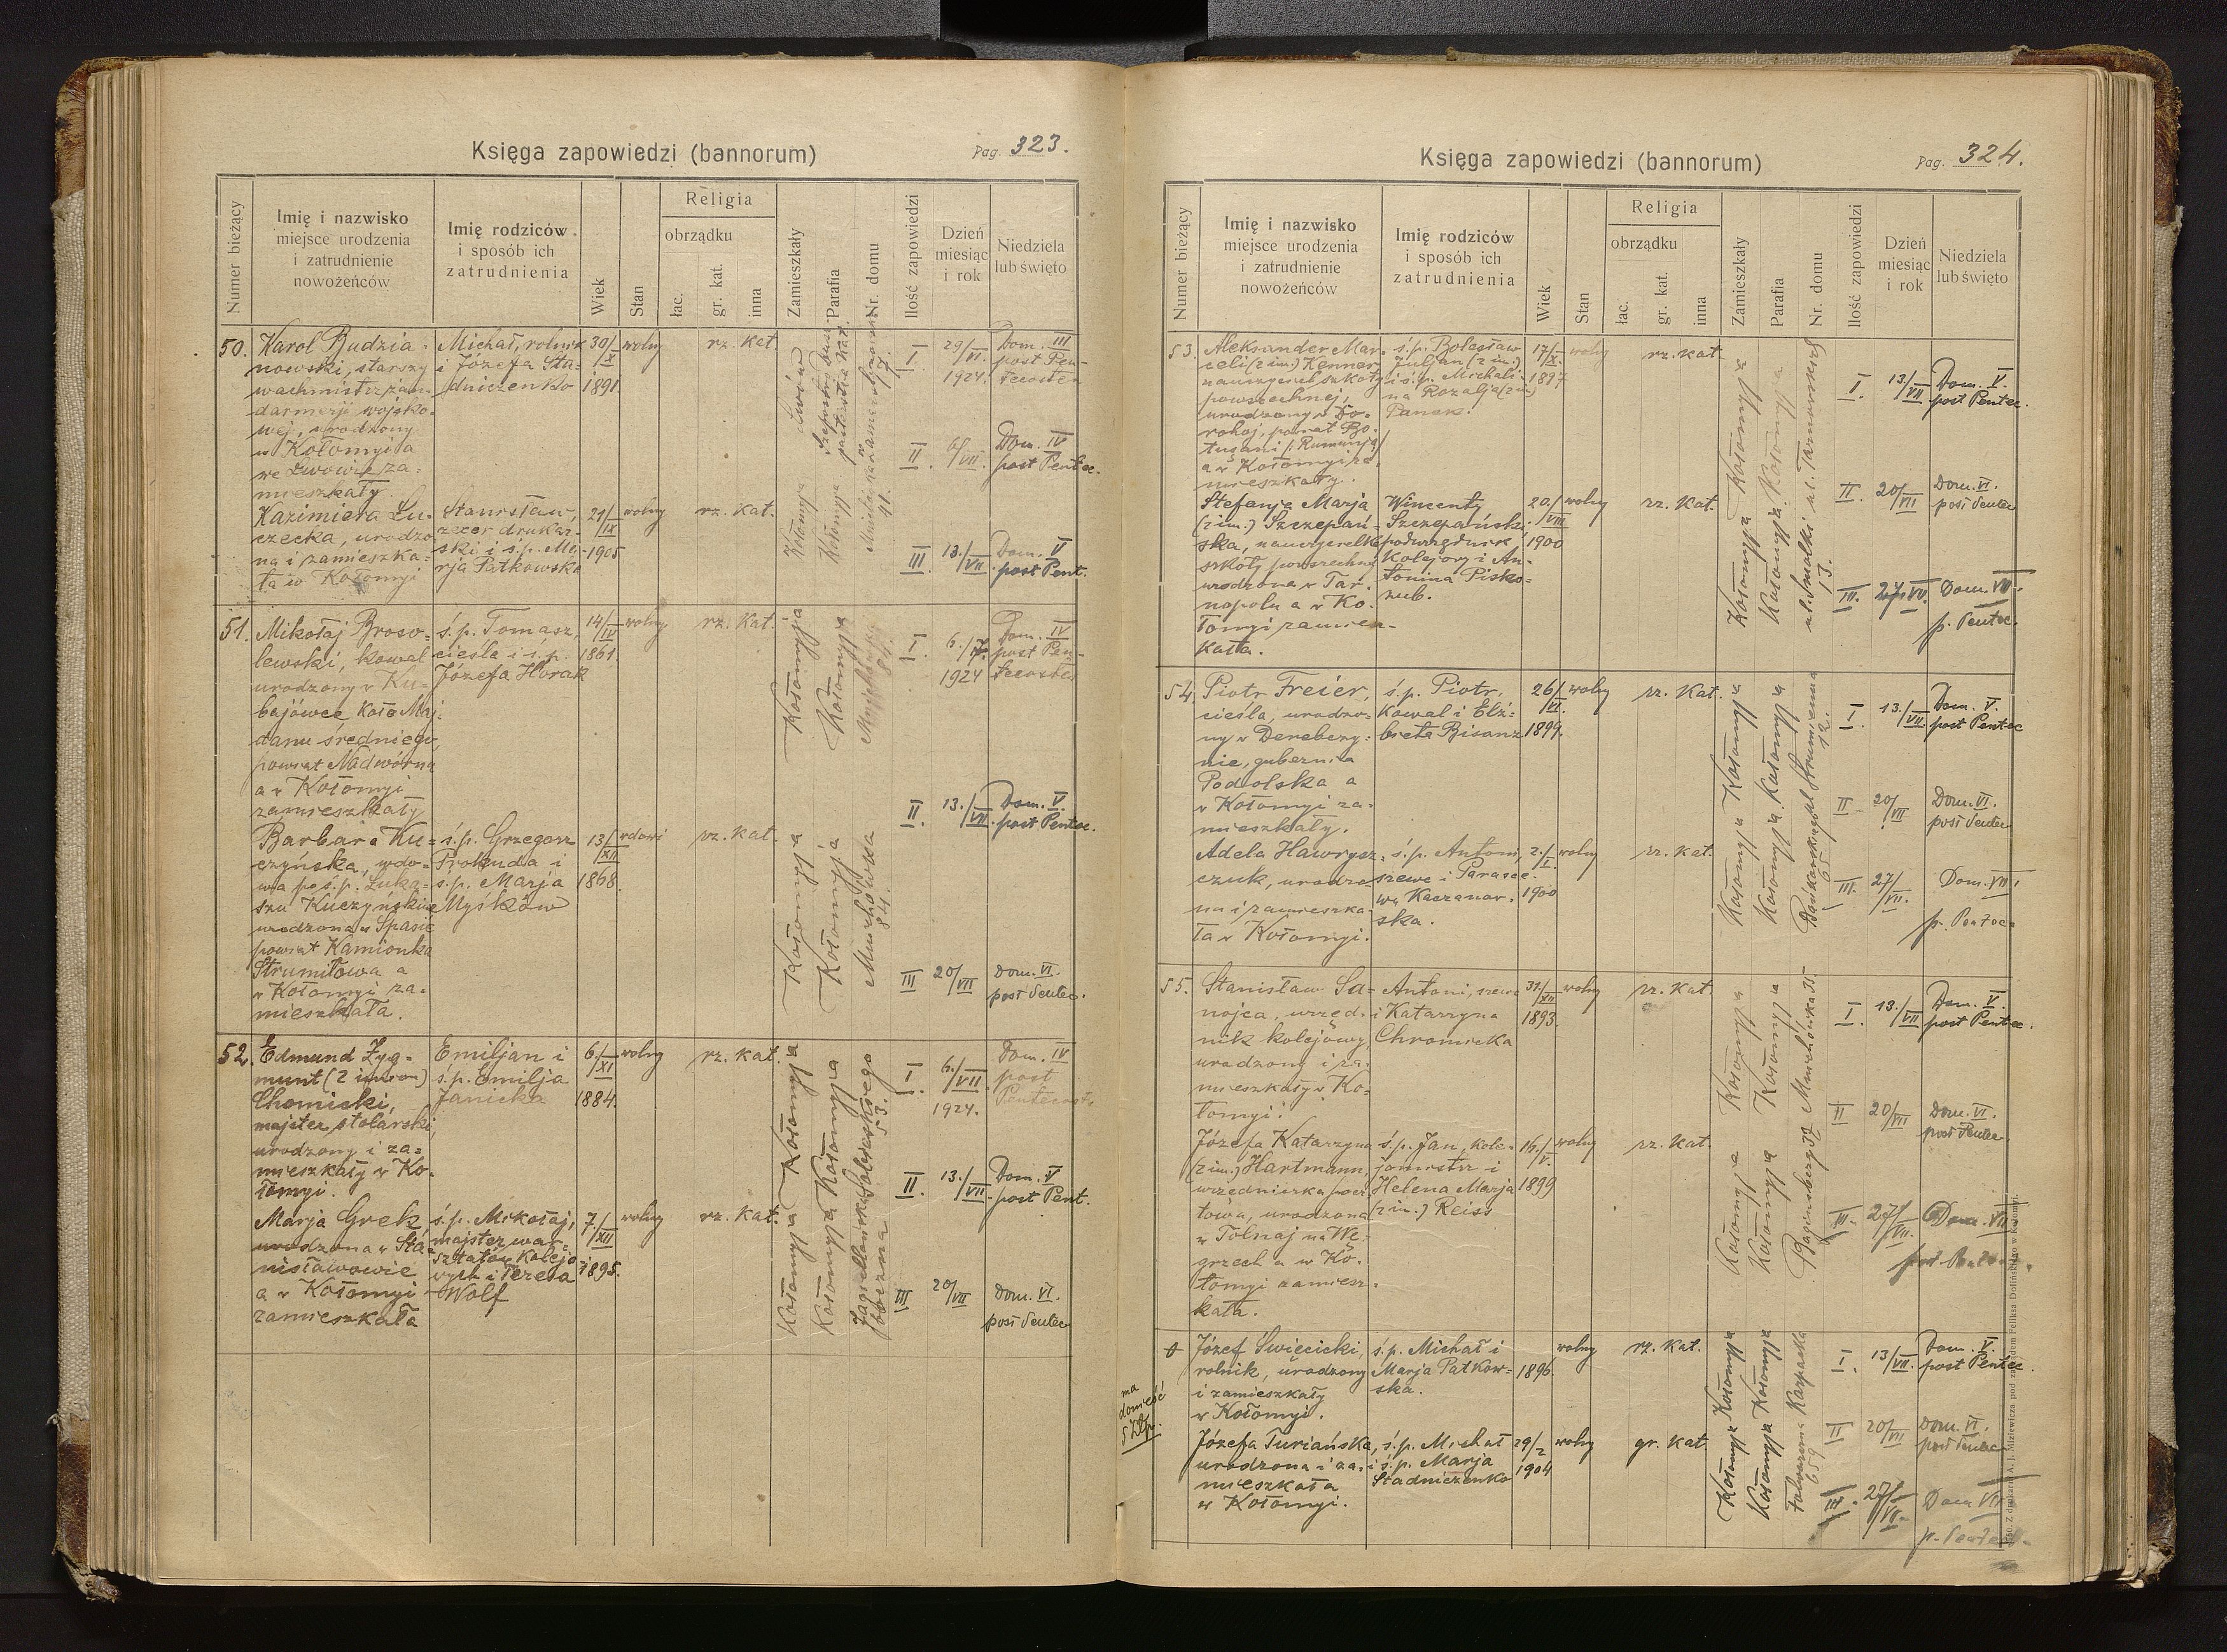 Księga zapowiedzi (bannorum)
Pag. 323.
Numer bieżący
Imię i nazwisko
miejsce urodzenia
i zatrudnienie
nowożeńców
Imię rodziców
i sposób ich
zatrudnienia
Wiek
Stan
Religia
obrządku
łac.
gr. kat.
inna
Zamieszkały
Parafia
Nr. domu
Ilość zapowiedzi
Dzień
miesiąc
i rok
Niedziela
lub święto
50.
Karol Budzia-
nowski, starszy
wachmistrz żan-
darmerji wojsko-
wej, urodzony
w Kołomyi a
we Lwowie za-
mieszkały.
Michał, rolnik
i Józefa Sta-
dniczenko
30/X
1891.
wolny
rz. kat.
Lwów
I.
29/VI.
1924.
Dom. III
post Pen-
tecosten
II.
6/VII.
Dom. IV
post Pentec.
Kazimiera Łu-
czecka, urodzo
na i zamieszka-
ła w Kołomyi
Stanisław,
zecer drukar-
ski i ś.p. Ma-
rja Patkowska
21/IX
1905
wolny
rz. kat.
Kołomyja
Kołomyja
41.
III.
13./VII.
Dom. V
post Pent.
51.
Mikołaj Broso-
lewski, kowal
urodzony w Ku-
bajówce koło Maj-
danu średniego,
powiat Nadwórna
a w Kołomyi
zamieszkały
ś.p. Tomasz,
cieśla i ś.p.
Józefa Horak
14/IV
1861.
wolny
rz. kat.
Kołomyja
Kołomyja
84.
I.
6./7.
1924
Dom. IV
post Pen-
tecosten
II.
13./VII.
Dom. V.
post Pentec.
Barbara Ku-
czyńska, wdo-
wa po ś.p. Łuka-
szu Kuczyńskim
urodzona w Spasie
powiat Kamionka
Strumiłowa a
w Kołomyi za-
mieszkała.
ś.p. Grzegorz
Prokuda i
ś.p. Marja
Myśków
13/XII
1868.
wdowi
rz. kat.
Kołomyja
Kołomyja
Mnichówka
84.
III
20/VII
Dom. VI.
post Pentec.
52.
Edmund Zyg-
munt (2 imion)
Chomicki,
majster stolarski,
urodzony i za-
mieszkały w Ko-
łomyi.
Emiljan i
ś.p. Emilja
Janicka
6./XI
1884.
wolny
rz. kat.
Kołomyja
Kołomyja
53.
I.
6./VII.
1924.
Dom. IV
post
Pentecost.
II.
13./VII.
Dom. V
post Pent.
Marja Grek,
urodzona w Sta-
nisławowie
a w Kołomyi
zamieszkała
ś.p. Mikołaj,
majster war-
sztatów kolejo-
wych i Teresa
Wolf
7./XII
1895.
wolny
rz. kat.
Kołomyja
Kołomyja
Jagiellońska
boczna
III
20/VII
Dom. VI.
post Pentec
Księga zapowiedzi (bannorum)
Pag. 324.
Numer bieżący
Imię i nazwisko
miejsce urodzenia
i zatrudnienie
nowożeńców
Imię rodziców
i sposób ich
zatrudnienia
Wiek
Stan
Religia
obrządku
łac.
gr. kat.
inna
Zamieszkały
Parafia
Nr. domu
Ilość zapowiedzi
Dzień
miesiąc
i rok
Niedziela
lub święto
53.
Aleksander Mar-
celi (2 im.) Kenner
nauczyciel szkoły
powszechnej,
urodzony w Do-
rohoj, powiat Bo-
tuşani /: Rumunja/
a w Kołomyi za-
mieszkały.
ś.p. Bolesław
Juljan (2 im.)
i ś.p. Michali-
na Rozalja (2 im.)
Panek.
17/X.
1897
wolny
rz. kat.
Kołomyja
Kołomyja
ul. Tarnowskich
I.
13./VII.
Dom. V.
post Pentec.
II.
20/VII
Dom. VI.
post Pentec
Stefanja Marja
(2 im.) Szczepań-
ska, nauczycielka
szkoły powszechnej
urodzona w Tar-
nopolu a w Ko-
łomyi zamiesz-
kała.
Wincenty
Szczepański
podurzędnik
kolejowy i An-
tonina Pisko-
zub.
20./VIII
1900
wolny
rz. kat.
Kołomyja
Kołomyja
III.
27/VII.
Dom. VII.
p. Pentec.
54.
Piotr Freier,
cieśla, urodzo-
ny w Dereberzy-
nie, gubernia
Podolska a
w Kołomyi za-
mieszkały.
ś.p. Piotr,
kowal i Elż-
bieta Bisanz
26/VI.
1899.
wolny
rz. kat.
Kołomyja
Kołomyja
12.
I.
13./VII.
Dom. V.
post Pentec
II
20/VII
Dom. VI.
post Pentec
Adela Hawrysz-
czuk, urodzo-
na i zamieszka-
ła w Kołomyi.
ś.p. Antoni,
szewc i Parasce-
wa Kaczanow-
ska.
2./I.
1900
wolny
rz. kat.
Kołomyja
Kołomyja
65.
III.
27/VII.
Dom. VII.
p. Pentec.
55.
Stanisław Sa-
nojca, urzęd-
nik kolejowy,
urodzony i za-
mieszkały w Ko-
łomyi.
Antoni, szewc
i Katarzyna
Chromicka
31./XII
1893.
wolny
rz. kat.
Kołomyja
Kołomyja
I.
13./VII
Dom. V.
post Pentec.
II
20/VII
Dom. VI.
post Pentec
Józefa Katarzyna
(2 im.) Hartmann,
urzędniczka pocz-
towa, urodzona
w Tolnaj na Wę-
grzech a w Ko-
łomyi zamiesz-
kała.
ś.p. Jan, kole-
jomistrz i
Helena Marja
(2 im.) Reiss
16./V.
1899
wolny
rz. kat.
Kołomyja
Kołomyja
III.
27/VII.
Dom. VII
Józef Święcicki,
rolnik, urodzony
i zamieszkały
w Kołomyi.
ś.p. Michał i
Marja Patkow-
ska.
1896.
wolny
rz. kat.
Kołomyja
Kołomyja
Karpacka
I.
13/VII.
Dom. V.
post Pentec.
II
20/VII
Dom. VI.
post Pentec
ma
donieść
Józefa Turiańska,
urodzona i za-
mieszkała
w Kołomyi.
ś.p. Michał
i ś.p. Marja
Stadniczenko
29/2
1904
wolny
gr. kat.
Kołomyja
Kołomyja
659
III.
27/VII.
Dom VII
p. Pentec.